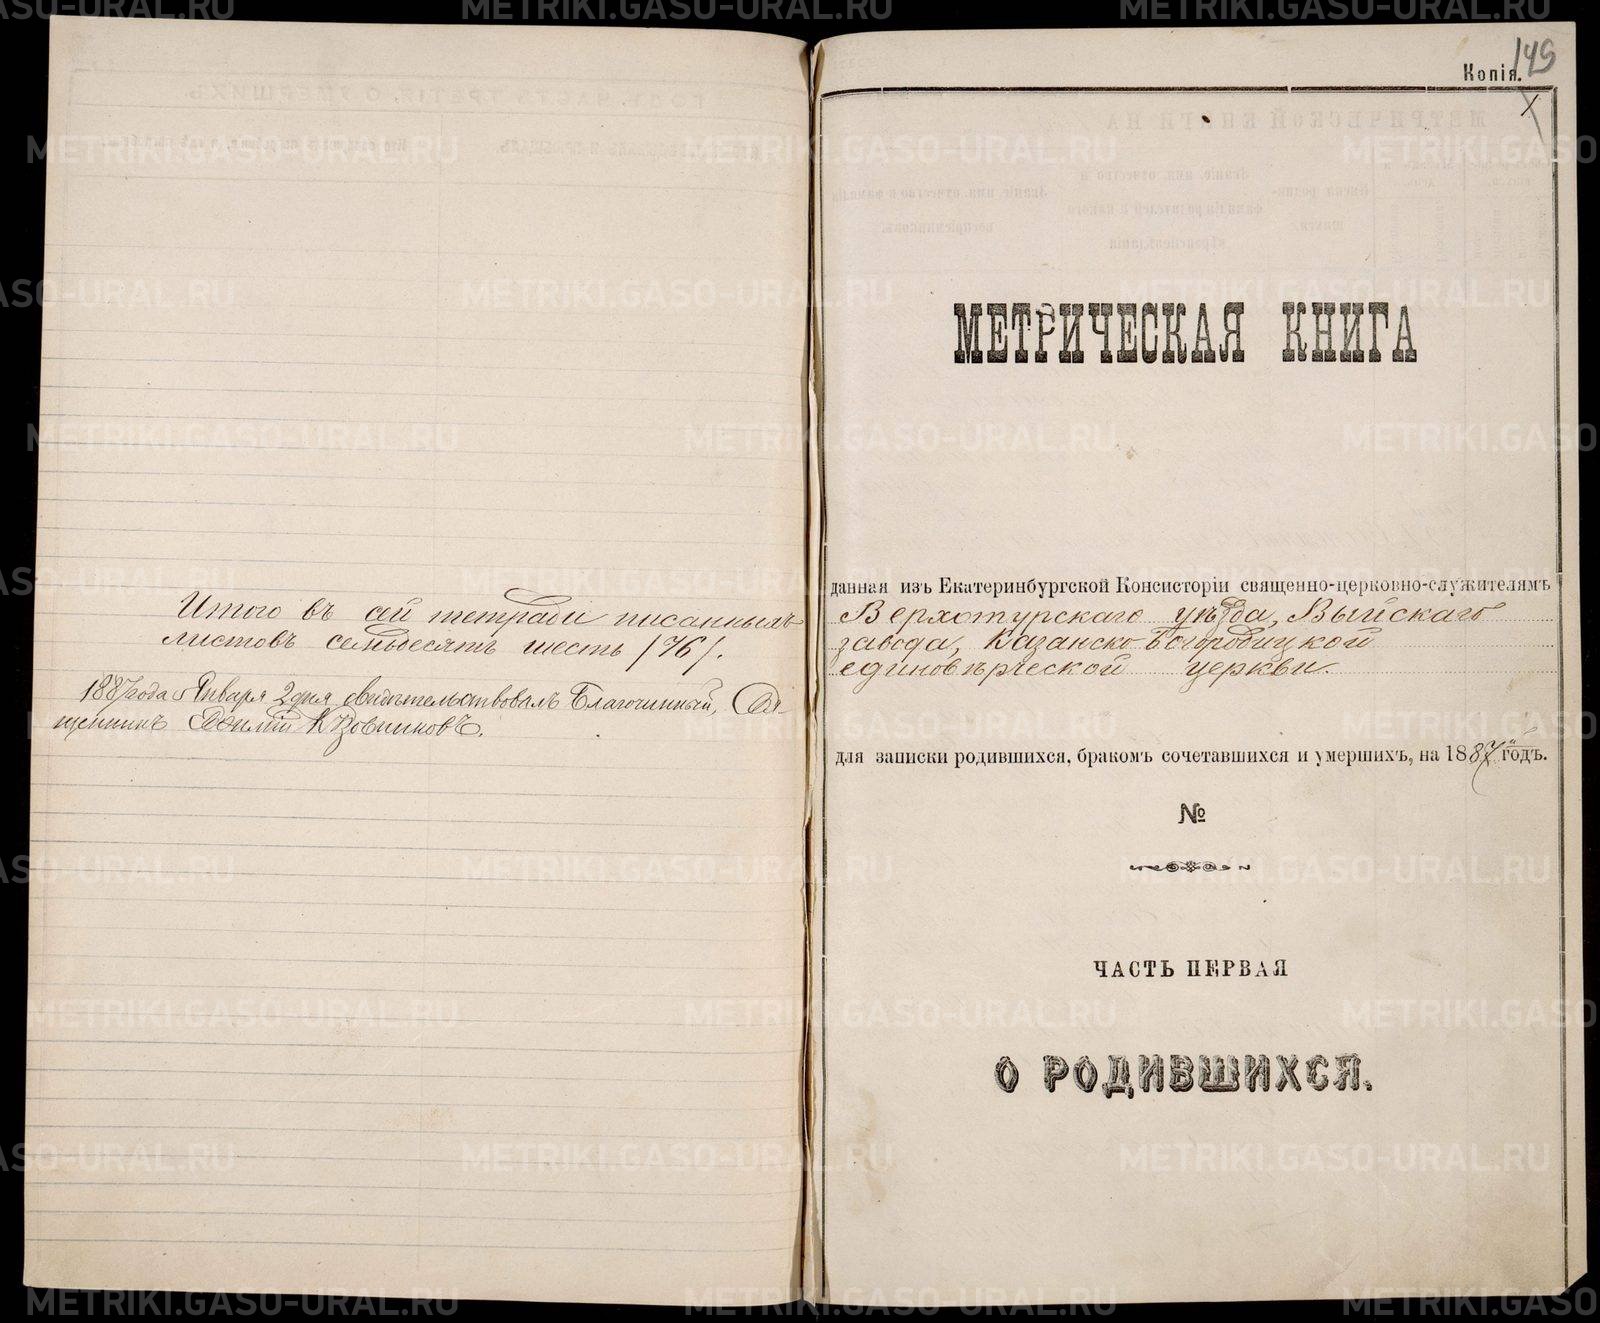 Итого въ сей тетради писанныхъ
листовъ семьдесятъ шесть /76/.
1887 года Января 2 дня свидѣтельствовалъ Благочинный, Свя-
щенникъ
149
Копія.
МЕТРИЧЕСКАЯ КНИГА
данная изъ Екатеринбургской Консисторіи священно-церковно-служителямъ
Верхотурскаго уѣзда, Выйскаго
завода, Казанско-Богородицкой
единовѣрческой церкви.
для записки родившихся, бракомъ сочетавшихся и умершихъ, на 1887 годъ.
№
ЧАСТЬ ПЕРВАЯ
О РОДИВШИХСЯ.
METRIKI.GASO-URAL.RU